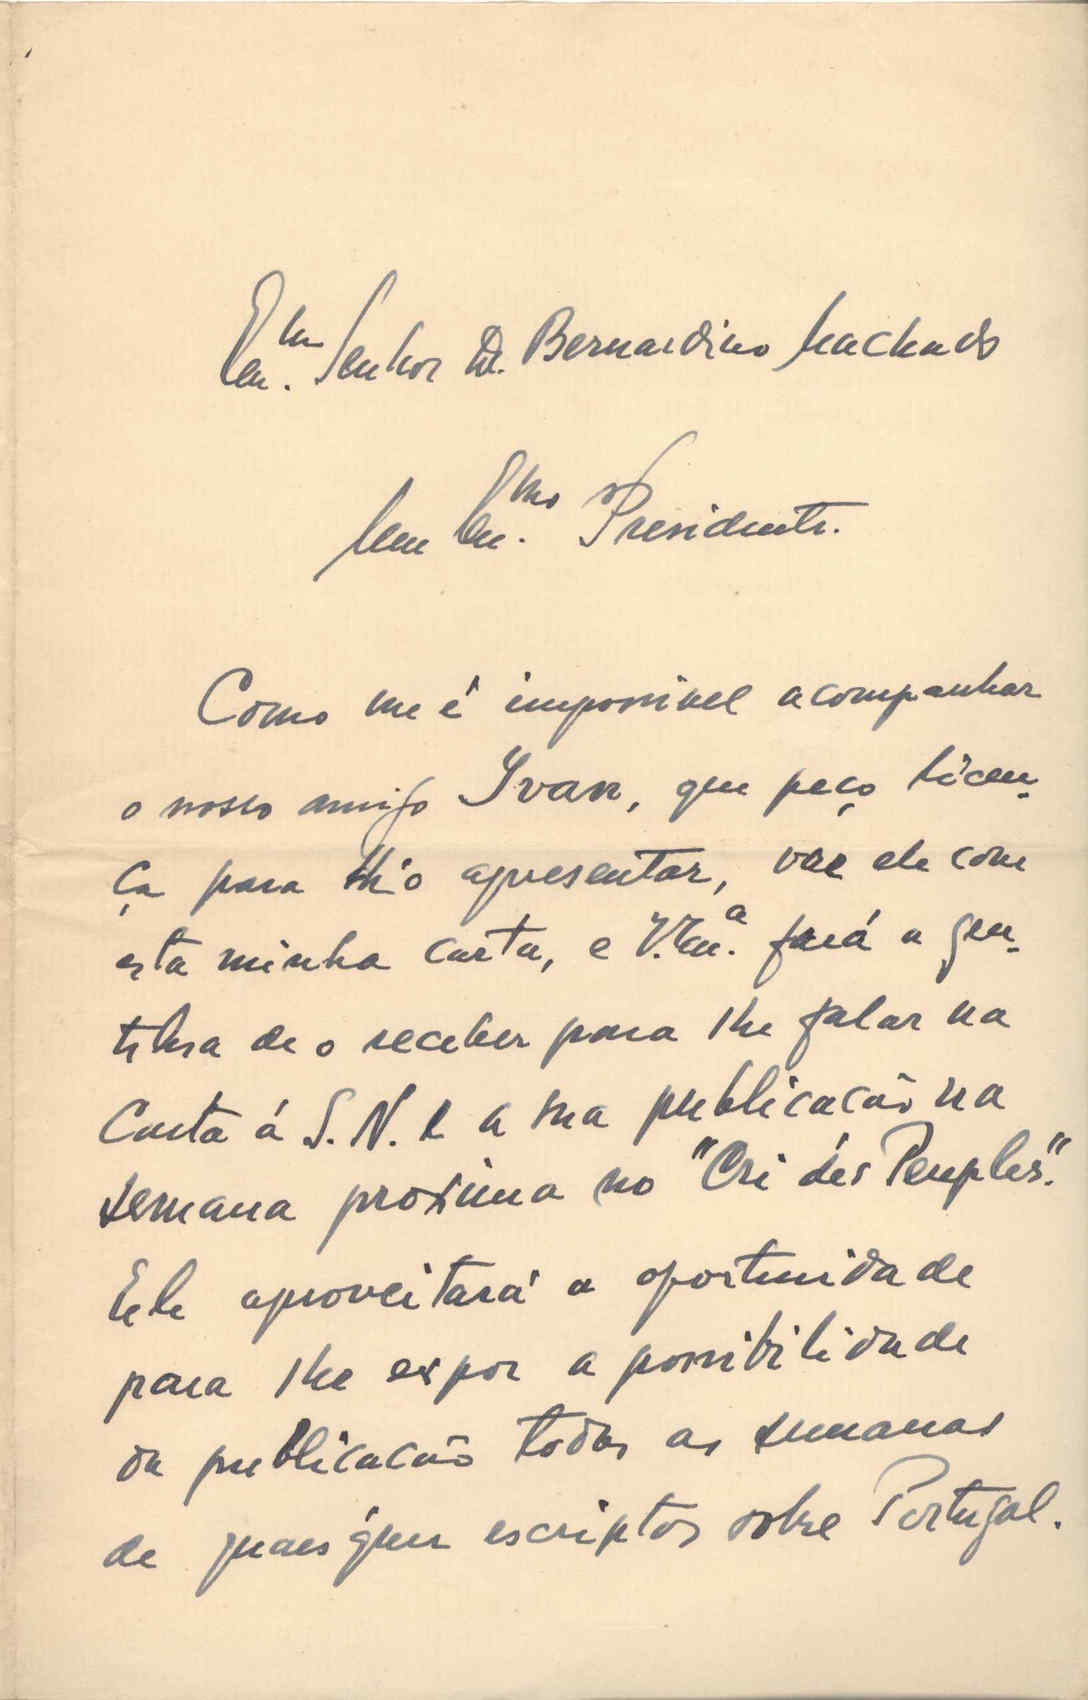 Exmo. Senhor Dr. Bernardino Machado
Meu Exmo. Presidente.
Como me é impossivel acompanhar
o nosso amigo Ivan, que peço licen-
ça para lh'o apresentar, vae ele com
esta minha carta, e V. Exa. fará a gen-
tileza de o receber para lhe falar na
Carta á S. N. e a sua publicacão na
semana proxima no "Cri des Peuples".
Ele aproveitará a oportunidade
para lhe expor a possibilidade
da publicacão todas as semanas
de quaesquer escriptos sobre Portugal.